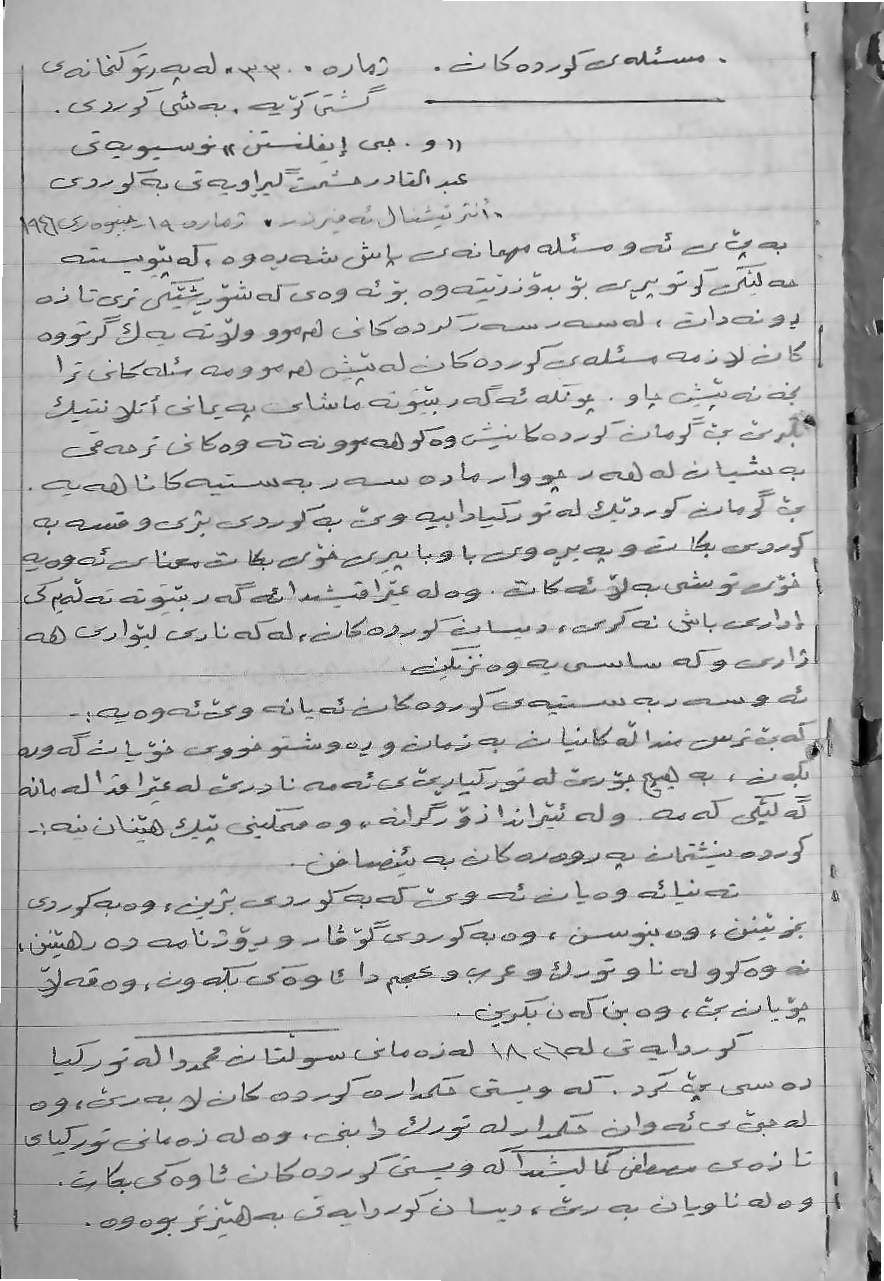 . مسئلەی کوردەکان. ژمارە ٣٣٠٠ لە پەرتوکخانەی
گشتی کۆیە. بەشی کوردی.
« و . جی إیفلنستن » نوسیویەتی
عبدالقادر حشمت گیراویەتی بە کوردی
ژمارە ١٩
بە پێ ی ئەو مسئلە مهمانەی پاش شەڕەوە، کە پێویستە
حەلێکی کوتوپڕی بۆ بدۆزرێتەوە بۆ ئەوەی کە شۆڕشێکی تری تازە
ڕونەدات، لەسەر سەرکردەکانی هەموو وڵاتە یەک گرتووە
کان لازمە مسئلەی کوردەکان لە پێش هەموو مەسئلەکانی ترا
بخەنە پێش چاو. چونکە ئەگەر بێتو تەماشای پەیمانی أتلانتیک
بکرێ بێ گومان کوردەکانیش وەکو هەموو نەتەوەکانی تر حەقی
بەشیان لە هەر چووار مادە سەربەستیەکانا هەیە.
بێ گومان کوردێک لە تورکیادا بیەوێ بە کوردی بژی و قسە بە
کوردی بکات و پەیڕەوی باوباپیری خۆی بکات معنای ئەوەیە
خۆی توشی بەڵا ئەکات. وە لە عێراقیشدا ئەگەر بێتو تەقەلایەکی
إداری باش نەکری، دیسان کوردەکان، لە کەناری لێواری هە
ژاری و کەساسی یەوە نزیکن.
ئەو سەربەستیەی کوردەکان ئەیانەوێ ئەوەیە:-
کە بێ ترس منداڵەکانیان بە زمان و ڕەوشتوخووی خۆیان گەورە
بکەن، بە هیچ جۆرێ لە تورکیا رێ ی ئەمە نادرێ لە عێراقدا لەمانە
گەلێکی کەمە. وە لە ئێراندا زۆر گرانە، وە ممکینی پێک هێنان نیە:-
کوردە نیشتمان پەروەرەکان بە ئینصافن.
تەنیا ئەوەیان ئەوێ کە بە کوردی بژین، وە بە کوردی
بخوێنن، وە بنوسن، وە بە کوردی گۆڤار و ڕۆژنامە دەرهێنن،
نەوەکوو لەناو تورک و عرب و عجم دا ئاوەکی بکەون، وە قەلا
چۆیان بێ، وە بن کەن بکرین.
کوردایەتی لە ١٨٢٦ لە زەمانی سوڵتان محمود دا لە تورکیا
دەسی پێ کرد. کە ویستی حکمدارە کوردەکان لابەرێ، وە
لە جێ ی ئەوان حکمدار لە تورک دابنی، وە لە زەمانی تورکیای
تازەی مصطفی کمالیشدا کە ویستی کوردەکان ئاوەکی بکات.
وە لە ناویان بەرێ، دیسان کوردایەتی بە هێزتر بوەوە.